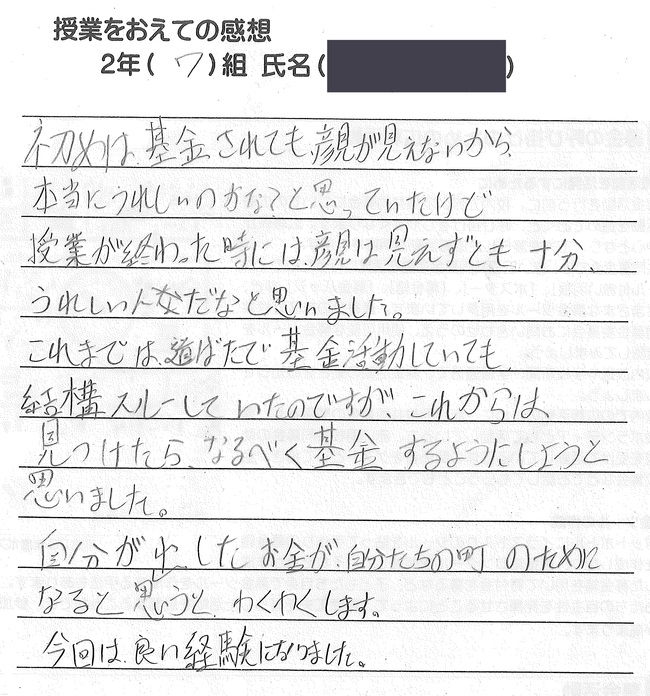 授業をおえての感想
2年(ワ)組 氏名( )
初めは、基金されても、顔が見えないから
本当にうれしいのかなって思っていたけど
授業が終わった時には、顔は見えずとも、十分、
うれしい人なだなと思いました。
これまでは、道ばたで基金活動していても
結構スルーしていたのですが これからは、
見つけたら、なるべく基金 するようにしようと
思いました。
自分が出したお金が、自分たちの町のために
なると思うと、わくわくします。
今回は、良い経験になりました。